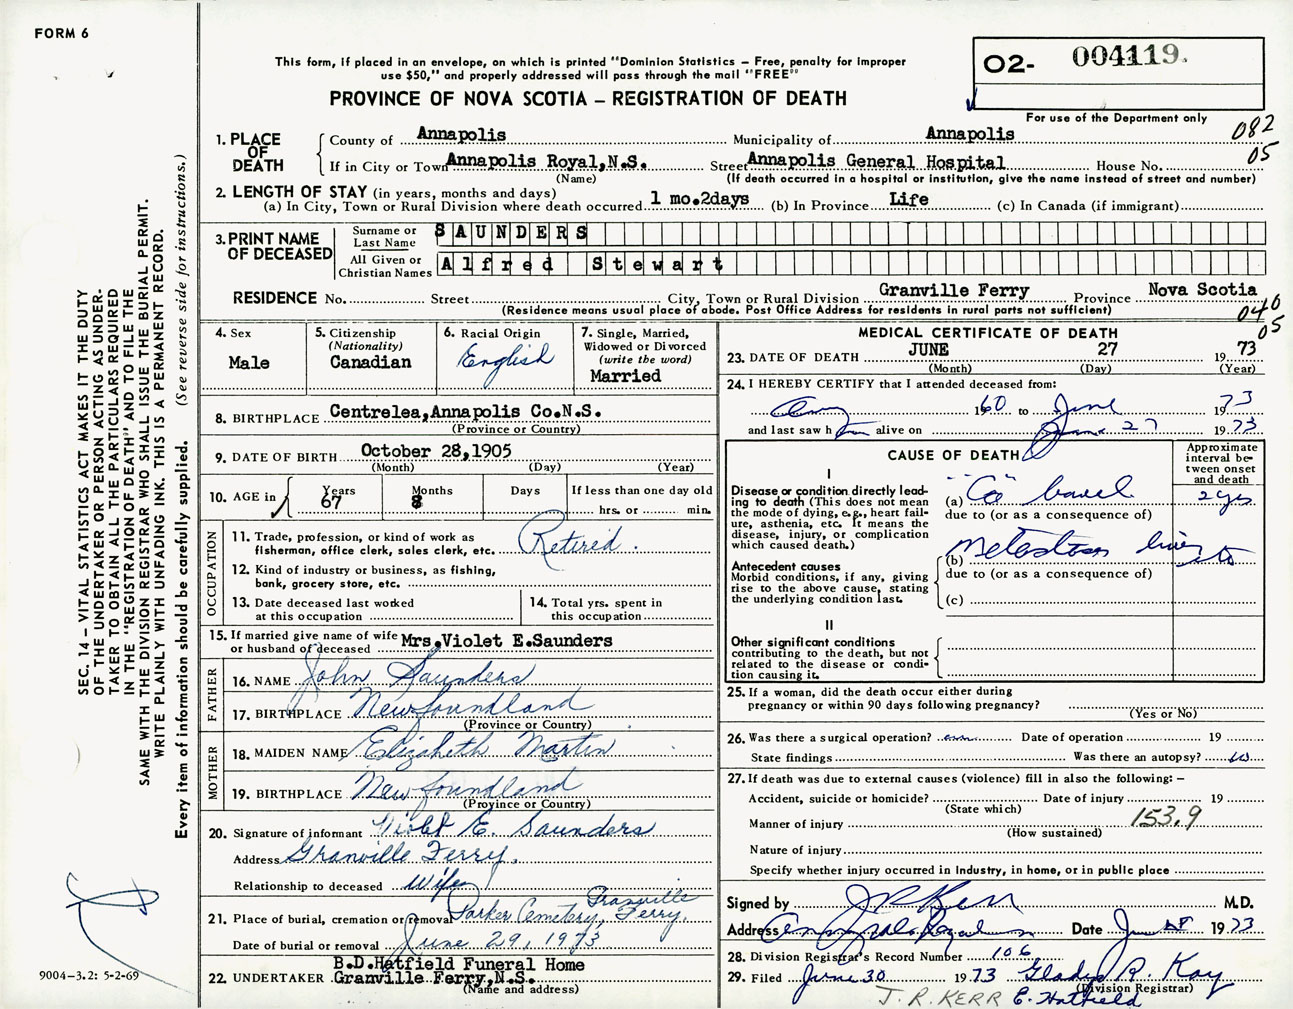 FORM 6
This form, if placed in an envelope, on which is printed "Dominion Statistics – Free, penalty for improper
use $50," and properly addressed will pass through the mail "FREE"
PROVINCE OF NOVA SCOTIA – REGISTRATION OF DEATH
O2- 004119.
For use of the Department only
082
05
1. PLACE OF DEATH
County of Annapolis Municipality of Annapolis
If in City or Town Annapolis Royal, N.S. Street Annapolis General Hospital House No.
(Name) (If death occurred in a hospital or institution, give the name instead of street and number)
2. LENGTH OF STAY (in years, months and days)
(a) In City, Town or Rural Division where death occurred 1 mo. 2days (b) In Province Life (c) In Canada (if immigrant)
3. PRINT NAME OF DECEASED
Surname or Last Name SAUNDERS
All Given or Christian Names Alfred Stewart
RESIDENCE No. Street City, Town or Rural Division Granville Ferry Province Nova Scotia
(Residence means usual place of abode. Post Office Address for residents in rural parts not sufficient)
040
05
4. Sex
Male
5. Citizenship
(Nationality)
Canadian
6. Racial Origin
English
7. Single, Married,
Widowed or Divorced
(write the word)
Married
8. BIRTHPLACE Centrelea, Annapolis Co. N.S.
(Province or Country)
9. DATE OF BIRTH October 28, 1905
(Month) (Day) (Year)
10. AGE in Years 67 Months 8 Days If less than one day old
hrs. or min.
OCCUPATION
11. Trade, profession, or kind of work as
fisherman, office clerk, sales clerk, etc. Retired.
12. Kind of industry or business, as fishing,
bank, grocery store, etc.
13. Date deceased last worked
at this occupation
14. Total yrs. spent in
this occupation
15. If married give name of wife
or husband of deceased Mrs. Violet E. Saunders
FATHER
16. NAME John Saunders
17. BIRTHPLACE Newfoundland
(Province or Country)
MOTHER
18. MAIDEN NAME Elizabeth Martin
19. BIRTHPLACE Newfoundland
(Province or Country)
20. Signature of informant Violet E. Saunders
Address Granville Ferry.
Relationship to deceased Wife
21. Place of burial, cremation or removal Parker Cemetery, Granville Ferry.
Date of burial or removal June 29, 1973
22. UNDERTAKER B.D. Hatfield Funeral Home
Granville Ferry, N.S.
(Name and address)
MEDICAL CERTIFICATE OF DEATH
23. DATE OF DEATH JUNE 27 19 73
(Month) (Day) (Year)
24. I HEREBY CERTIFY that I attended deceased from:
1960 to June 1973
and last saw h alive on June 27 1973
CAUSE OF DEATH
Approximate
interval be-
tween onset
and death
I
Disease or condition directly lead-
ing to death (This does not mean
the mode of dying, e.g., heart fail-
ure, asthenia, etc. It means the
disease, injury, or complication
which caused death.)
(a) "Ca" bowel 2 yrs
due to (or as a consequence of)
(b) Metastases liver
due to (or as a consequence of)
(c)
Antecedent causes
Morbid conditions, if any, giving
rise to the above cause, stating
the underlying condition last.
II
Other significant conditions
contributing to the death, but not
related to the disease or condi-
tion causing it.
25. If a woman, did the death occur either during
pregnancy or within 90 days following pregnancy?
(Yes or No)
26. Was there a surgical operation? Date of operation 19
State findings Was there an autopsy? no
27. If death was due to external causes (violence) fill in also the following: –
Accident, suicide or homicide? Date of injury 19
(State which)
Manner of injury 153.9
(How sustained)
Nature of injury
Specify whether injury occurred in Industry, in home, or in public place
Signed by J R Kerr M.D.
Address Annapolis Royal Date June 1973
28. Division Registrar's Record Number 106
29. Filed June 30 1973 Gladys R. Kay
(Division Registrar)
J. R. KERR E. Hatfield
SEC. 14 – VITAL STATISTICS ACT MAKES IT THE DUTY
OF THE UNDERTAKER OR PERSON ACTING AS UNDER-
TAKER TO OBTAIN ALL THE PARTICULARS REQUIRED
IN THE "REGISTRATION OF DEATH" AND TO FILE THE
SAME WITH THE DIVISION REGISTRAR WHO SHALL ISSUE THE BURIAL PERMIT.
WRITE PLAINLY WITH UNFADING INK. THIS IS A PERMANENT RECORD.
Every item of information should be carefully supplied. (See reverse side for instructions.)
9004-3.2: 5-2-69